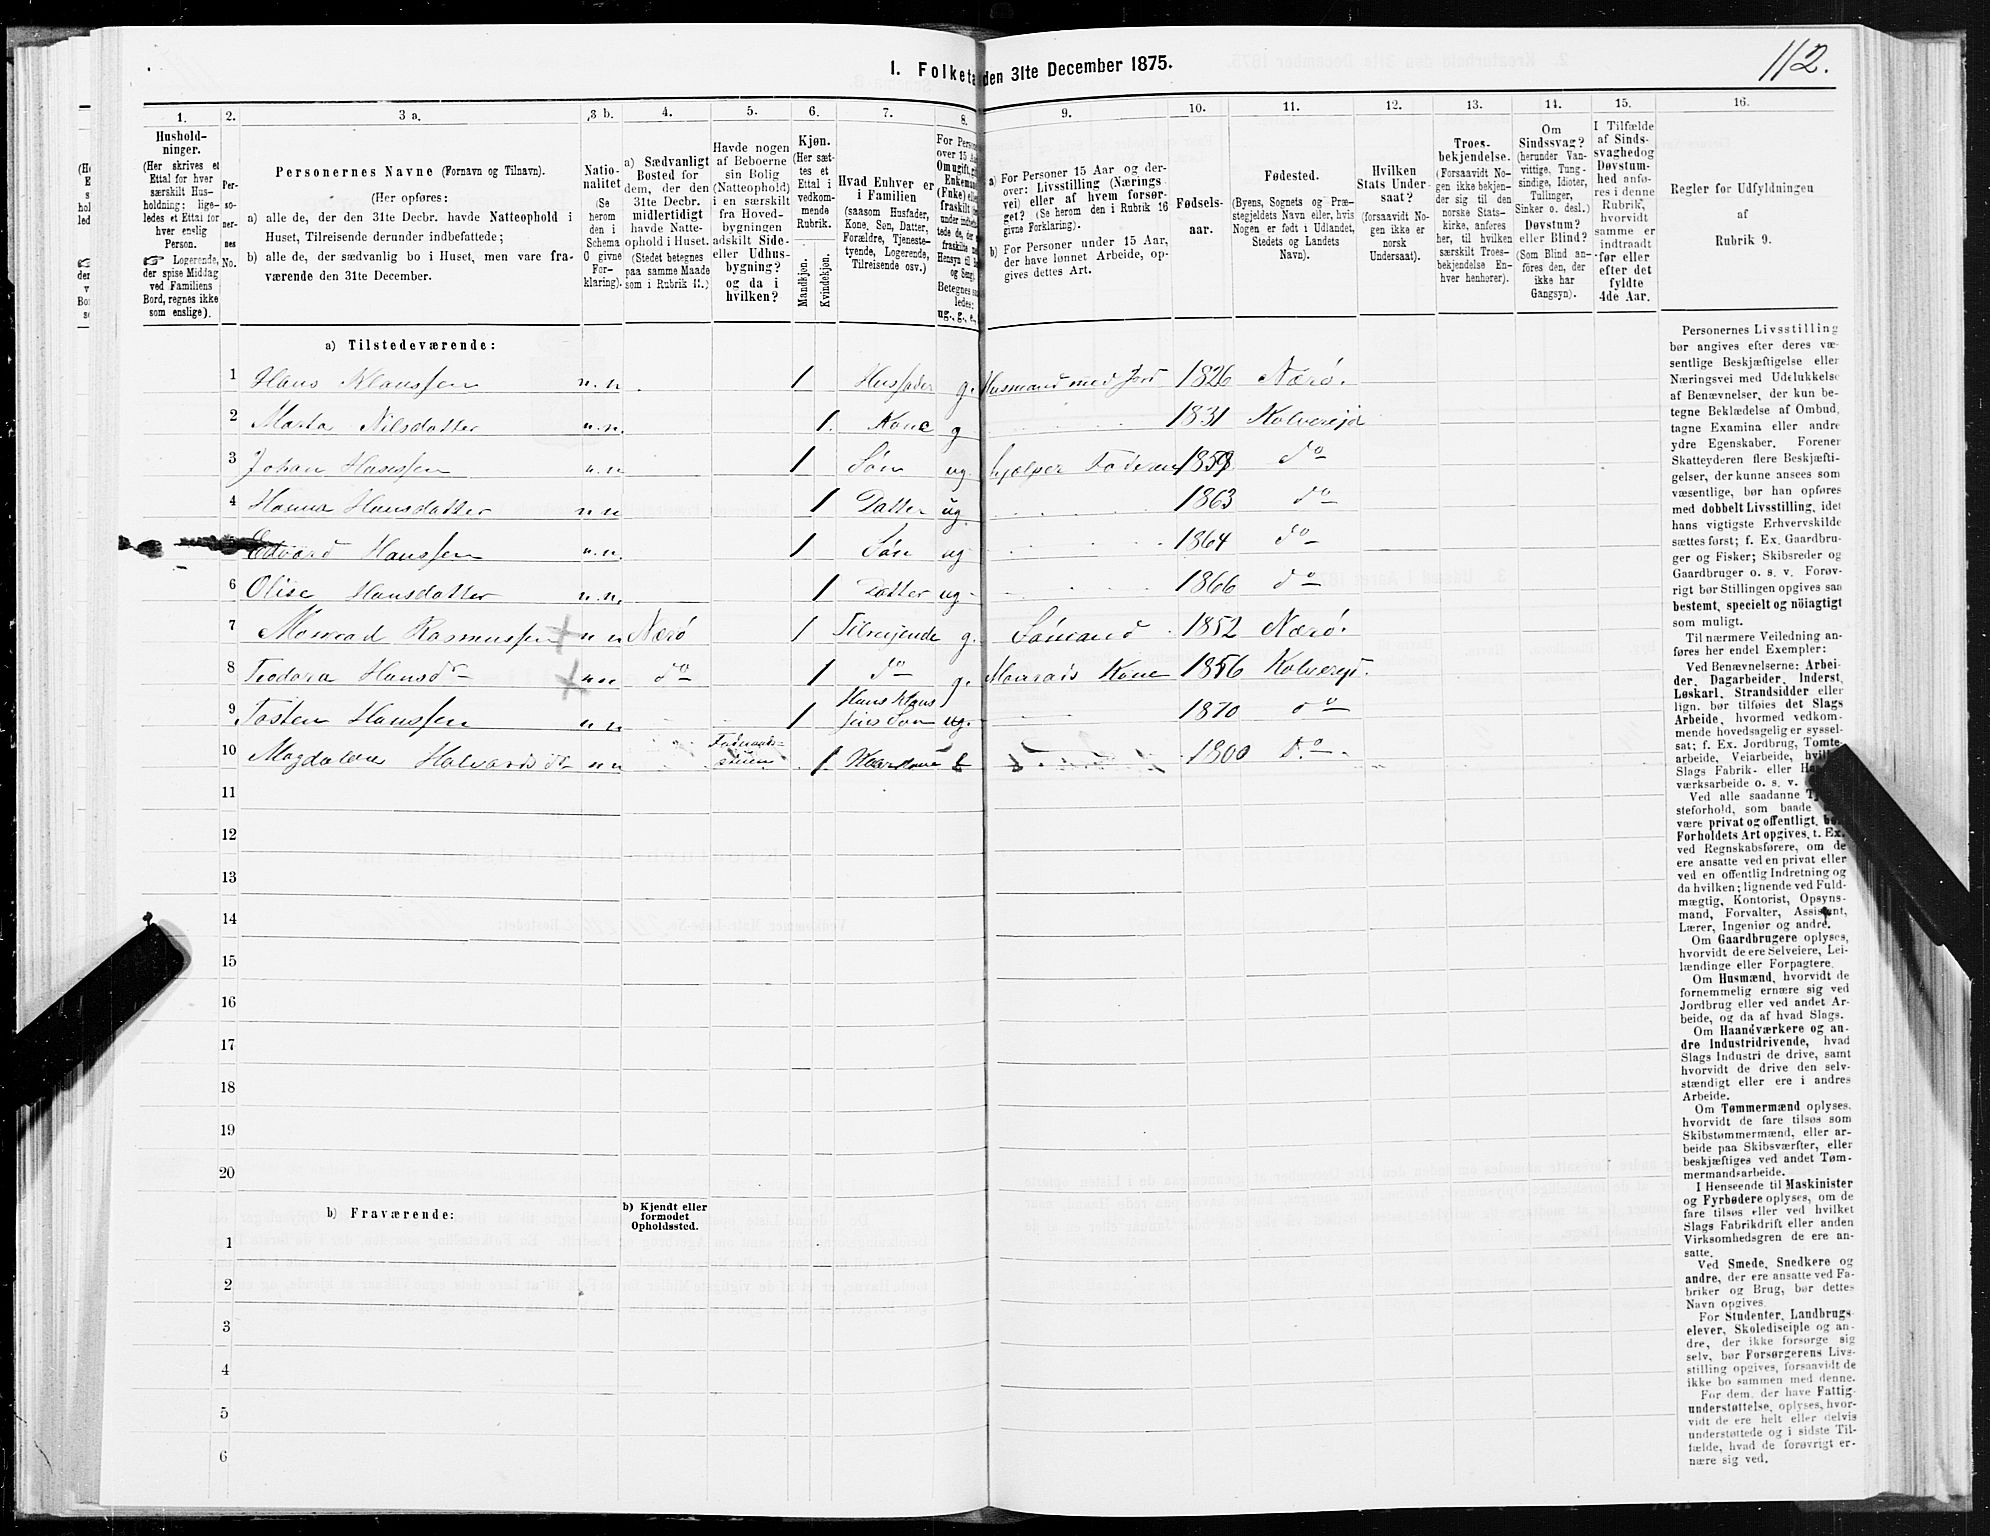 112.
I. Folketæ den 31te December 1875.
1. 2. 3 a. 3 b. 4. 5. 6. 7. 8. 9. 10. 11. 12. 13. 14. 15. 16.
Hushold-
ninger.
(Her skrives et
Ettal for hver
særskilt Hus-
holdning; lige-
ledes et Ettal for
hver enslig
Person.
☞ Logerende,
der spise Middag
ved Familiens
Bord, regnes ikke
som enslige).
Per-
so-
ner-
nes
No.
Personernes Navne (Fornavn og Tilnavn).
(Her opføres:
a) alle de, der den 31te Decbr. havde Natteophold i
Huset, Tilreisende derunder indbefattede;
b) alle de, der sædvanlig bo i Huset, men vare fra-
værende den 31te December.
Natio-
nalitet
(Se
herom
den i
Schema
O givne
For-
klaring).
a) Sædvanligt
Bosted for
dem, der den
31te Decbr.
midlertidigt
havde Natte-
ophold i Huset.
(Stedet betegnes
paa samme Maade
som i Rubrik 11.)
Havde nogen
af Beboerne
sin Bolig
(Natteophold)
i en særskilt
fra Hoved-
bygningen
adskilt Side-
eller Udhus-
bygning?
og da i
hvilken?
Kjøn.
(Her sæt-
tes et
Ettal i
vedkom-
mende
Rubrik.
Mandkjøn.
Kvindekjøn.
Hvad Enhver er
i Familien
(saasom Husfader,
Kone, Søn, Datter,
Forældre, Tjeneste-
tyende, Logerende,
Tilreisende osv.)
For Person
over 15 Aa
Om ugift, g
Enkema
(Fnke) elle
fraskilt
Betegnes saa
ledes:
ug., g., e.,
a) For Personer 15 Aar og der-
over: Livsstilling (Nærings-
vei) eller af hvem forsør-
get? (Se herom den i Rubrik 16
givne Forklaring).
b) For Personer under 15 Aar,
der have lønnet Arbeide, op-
gives dettes Art.
Fødsels-
aar.
Fødested.
(Byens, Sognets og Præ-
stegjeldets Navn eller, hvis
Nogen er født i Udlandet,
Stedets og Landets
Navn).
Hvilken
Stats Under-
saat?
(forsaavidt No-
gen ikke er
norsk
Undersaat).
Troes-
bekjendelse.
(Forsaavidt No-
gen ikke bekjen-
der sig til den
norske Stats-
kirke, anføres
her, til hvilken
særskilt Troes-
bekjendelse En-
hver henhører).
Om
Sindssvag?
(herunder Van-
vittige, Tung-
sindige, Idioter,
Tullinger,
Sinker o. desl.)
Døvstum?
eller Blind?
(Som Blind an-
føres den, der
ikke har
Gangsyn).
I Tilfælde
af Sinds-
svaghed og
Døvstum-
hed anfø-
res i denne
Rubrik,
hvorvidt
samme er
indtraadt
før eller
efter det
fyldte
4de Aar.
Regler for Udfyldningen
af
Rubrik 9.
a) Tilstedeværende:
1 Hans Klaussen n. n. 1 Husfader g. Husmand med Jord 1826 Nærø.
2 Marta Nilsdatter n. n. 1. Kone g 1831 Kolvereid
3 Johan Hanssen n. n 1 Søn ug. hjælper Faderen 1859 do
4 Hanna Hansdatter n n 1 Datter ug. 1863 do
Edvard Hanssen n. n. 1 Søn ug 1864 do
6 Olise Hansdatter n. n. 1 Datter ug 1866 do
7 Monrad Rasmussen n n Nærø 1 Tilreisende g. Sømand 1852 Nærø.
8 Teodora Hansd n n do 1 do g. Monrads Kone 1856 Kolvereid.
9 Tosten Hanssen n n 1 Hans Klaus
sens Søn ug. 1870 do
10 Magdalena Halvardsd n nFøderaads-
stuen 1 Kaarkone E 1800 Do.
11
12
13
14
15
16
17
18
19
20
b) Fraværende:
b) Kjendt eller
formodet
Opholdssted.
1
2
3
4
5
6
Personernes Livsstilling
bør angives efter deres væ-
sentlige Beskjæftigelse eller
Næringsvei med Udelukkelse
af Benævnelser, der kun be-
tegne Beklædelse af Ombud,
tagne Examina eller andre
ydre Egenskaber. Forener
Skatteyderen flere Beskjæfti-
gelser, der kunne ansees som
væsentlige, bør han opføres
med dobbelt Livsstilling, idet
hans vigtigste Erhvervskilde
sættes først; f. Ex. Gaardbru-
ger og Fisker; Skibsreder og
Gaardbruger o. s. v. Forøv-
rigt bør Stillingen opgives saa
bestemt, specielt og nöiagtigt
som muligt.
Til nærmere Veiledning an-
føres her endel Exempler:
Ved Benævnelserne: Arbei-
der, Dagarbeider, Inderst,
Løskarl, Strandsidder eller
lign. bør tilføies det Slags
Arbeide, hvormed vedkom-
mende hovedsagelig er syssel-
sat; f. Ex. Jordbrug, Tomte-
arbeide, Veiarbeide,
Slags Fabrik- eller
værksarbeide o. s. v.
Ved alle saadanne
steforhold, som baade
være privat og offentligt,
Forholdets Art opgives, t. Ex.
ved Regnskabsførere, om de
ere ansatte ved en privat eller
ved en offentlig Indretning og
da hvilken; lignende ved Fuld-
mægtig, Kontorist, Opsyns-
mand, Forvalter, Assistent,
Lærer, Ingeniør og andre.
Om Gaardbrugere oplyses,
hvorvidt de ere Selveiere, Lei-
lændinge eller Forpagtere.
Om Husmænd, hvorvidt de
fornemmelig ernære sig ved
Jordbrug eller ved andet Ar-
beide, og da af hvad Slags.
Om Haandværkere og an-
dre Industridrivende, hvad
Slags Industri de drive, samt
hvorvidt de drive den selv-
stændigt eller ere i andres
Arbeide.
Om Tømmermænd oplyses,
hvorvidt de fare tilsøs som
Skibstømmermænd, eller ar-
beide paa Skibsværfter, eller
beskjæftiges ved andet Tøm-
mermandsarbeide.
I Henseende til Maskinister
og Fyrbødere oplyses, om de
fare tilsøs eller ved hvilket
Slags Fabrikdrift eller anden
Virksomhedsgren de ere an-
satte.
Ved Smede, Snedkere og
andre, der ere ansatte ved Fa-
briker og Brug, bør dettes
Navn opgives.
For Studenter, Landbrugs-
elever, Skoledisciple og an-
dre, der ikke forsørge sig
selv, bør Forsørgerens Livs-
stilling opgives, forsaavidt de
ikke bo sammen med denne.
For dem, der have Fattig-
understøttelse, oplyses, hvor-
vidt de ere helt eller delvis
understøttede og i sidste Til-
fælde, hvad de forøvrigt er-
nære sig ved.